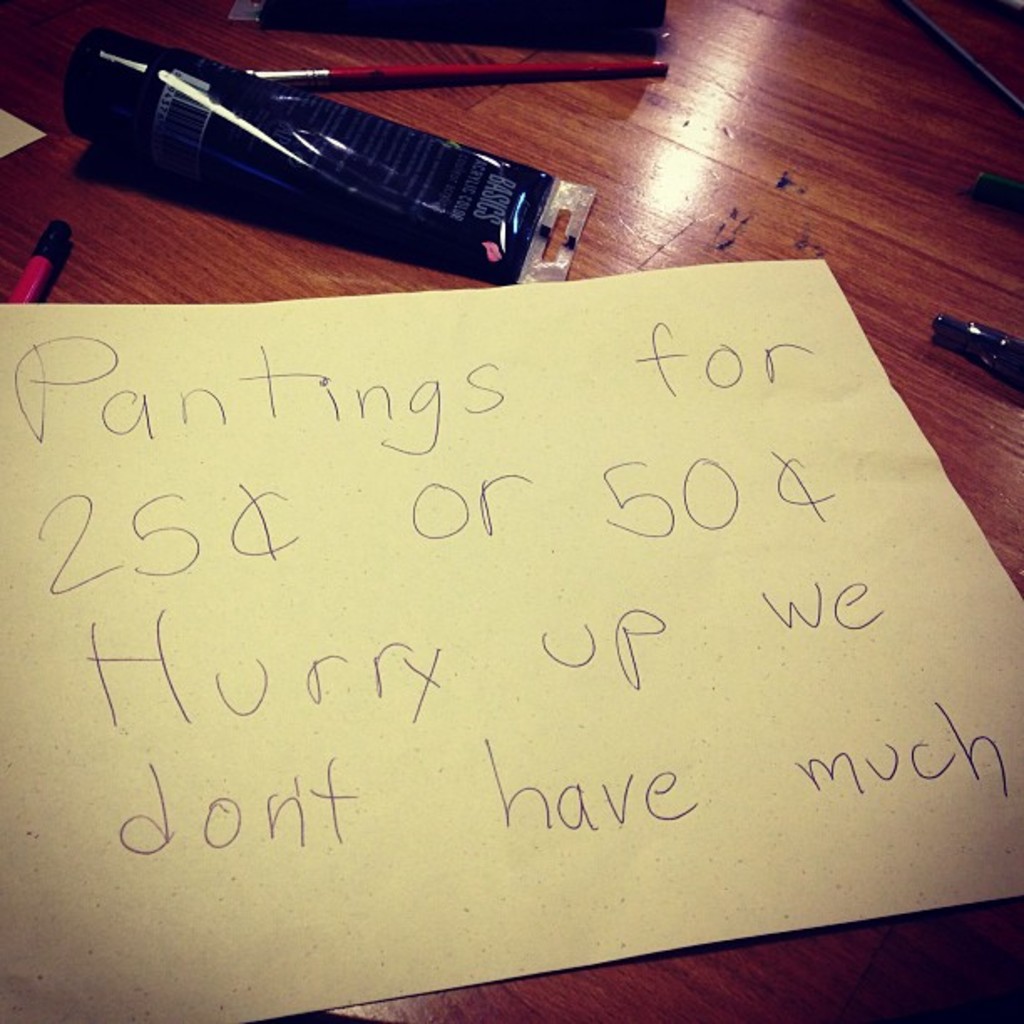 BASICS
ACRYLIC COLOR
Pantings for
25¢ or 50¢
Hurry up we
don't have much